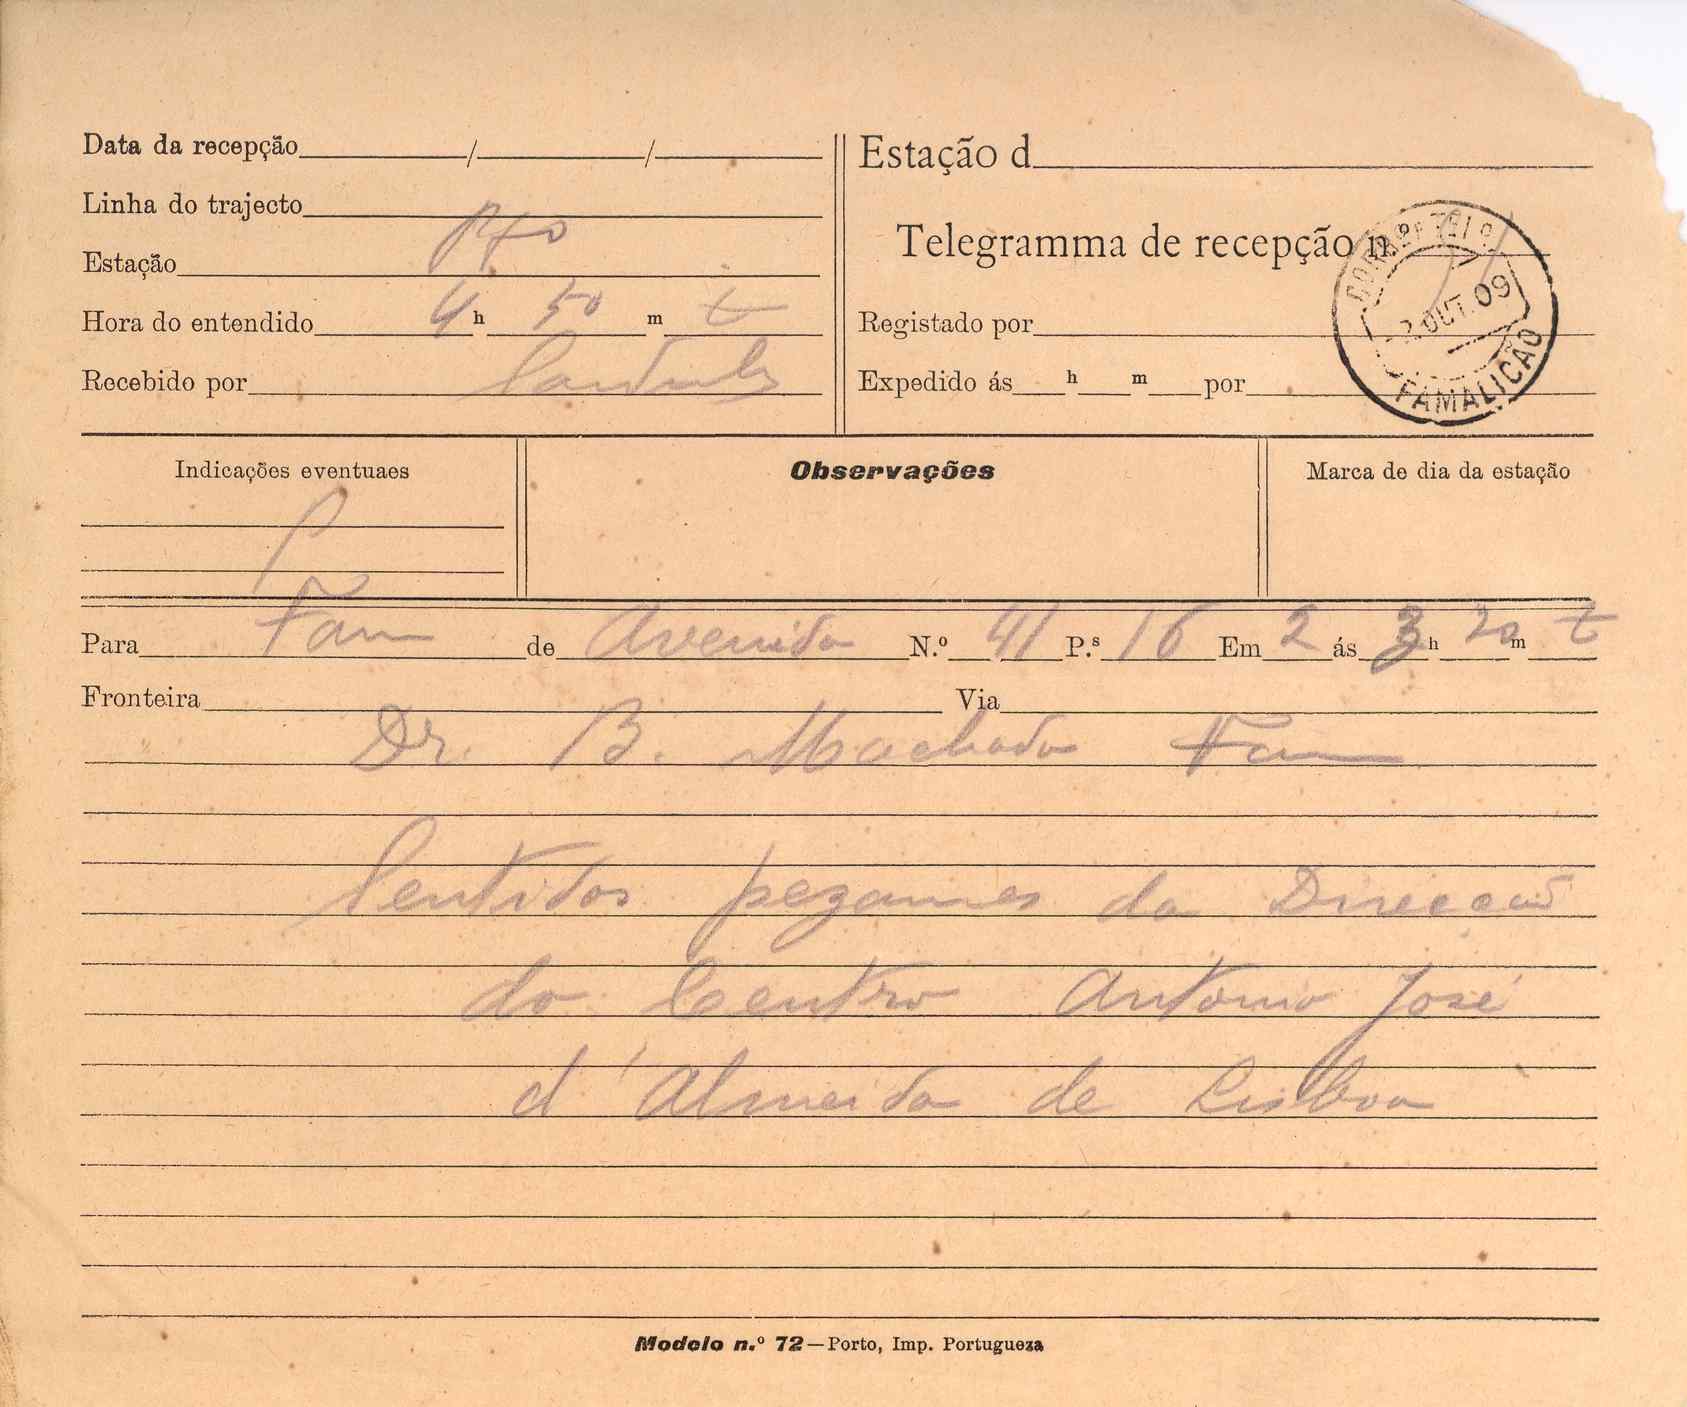 Data da recepção / /
Linha do trajecto
Estação Pto
Hora do entendido 4 h 50 m t
Recebido por
Estação d
Telegramma de recepção n.
Registado por
Expedido ás h m por
2 OUT. 09
FAMALICÃO
Indicações eventuaes
Observações
Marca de dia da estação
P
Para Fam de Avenida N.º 41 P.s 16 Em 2 ás 3 h 20 m t
Fronteira Via
Dr. B. Machado Fam
Sentidos pezames da Direcção
do Centro Antonio José
d'Almeida de Lisboa
Modelo n.º 72—Porto, Imp. Portugueza